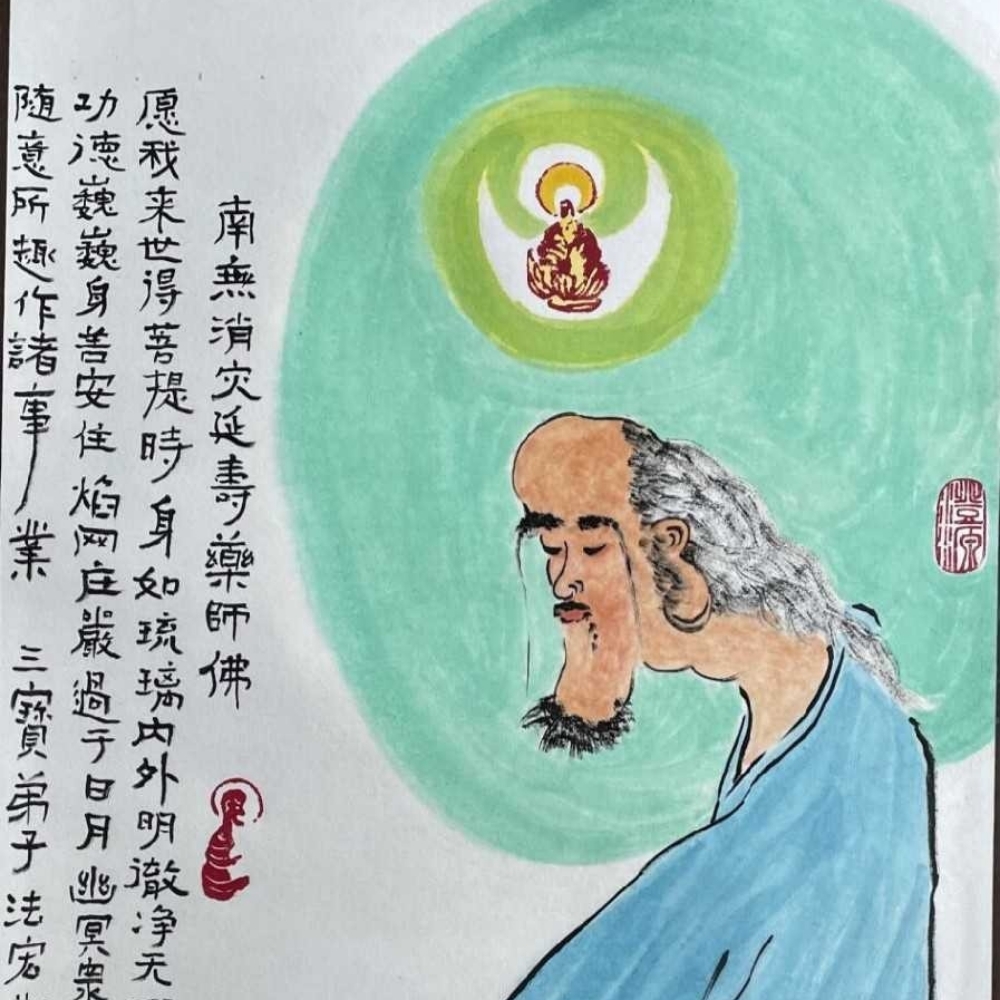 南無消灾延壽藥師佛
愿我来世得菩提時身如琉璃内外明徹净无
功德巍巍身善安住焰网庄嚴過于日月幽冥眾
随意所趣作諸事業 三寶弟子法宏
澄源